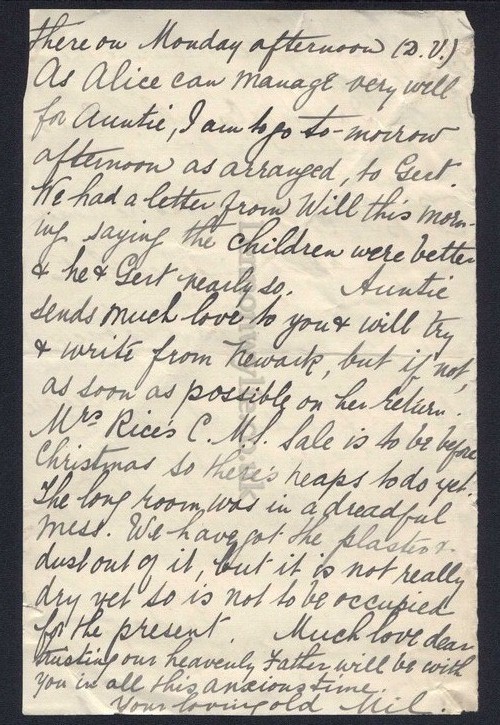 there on Monday afternoon (D.V.)
As Alice can manage very well
for Auntie, I am to go to-morrow
afternoon as arranged, to Gert.
We had a letter from Will this morn-
ing saying the children were better
& he & Gert nearly so. Auntie
sends much love to you & will try
& write from Newark, but if not,
as soon as possible on her return.
Mrs Rice's C.M.S. Sale is to be before
Christmas so there's heaps to do yet.
The long room was in a dreadful
mess. We have got the plaster &
dust out of it, but it is not really
dry yet so is not to be occupied
for the present. Much love dear
trusting our heavenly Father will be with
you in all this anxious time.
Your loving old Mil.